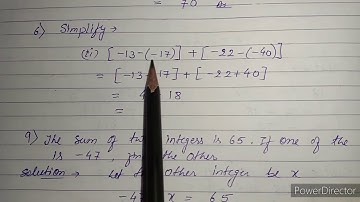 = 70 Ans
6) Simplify →
(ii) [-13-(-17)] + [-22-(-40)]
= [-13 17] + [-22+40]
= 18
=
9) The sum of two integers is 65. If one of the
is -47, find the other
solution → Let other integer be x
-4 x = 65
PowerDirector